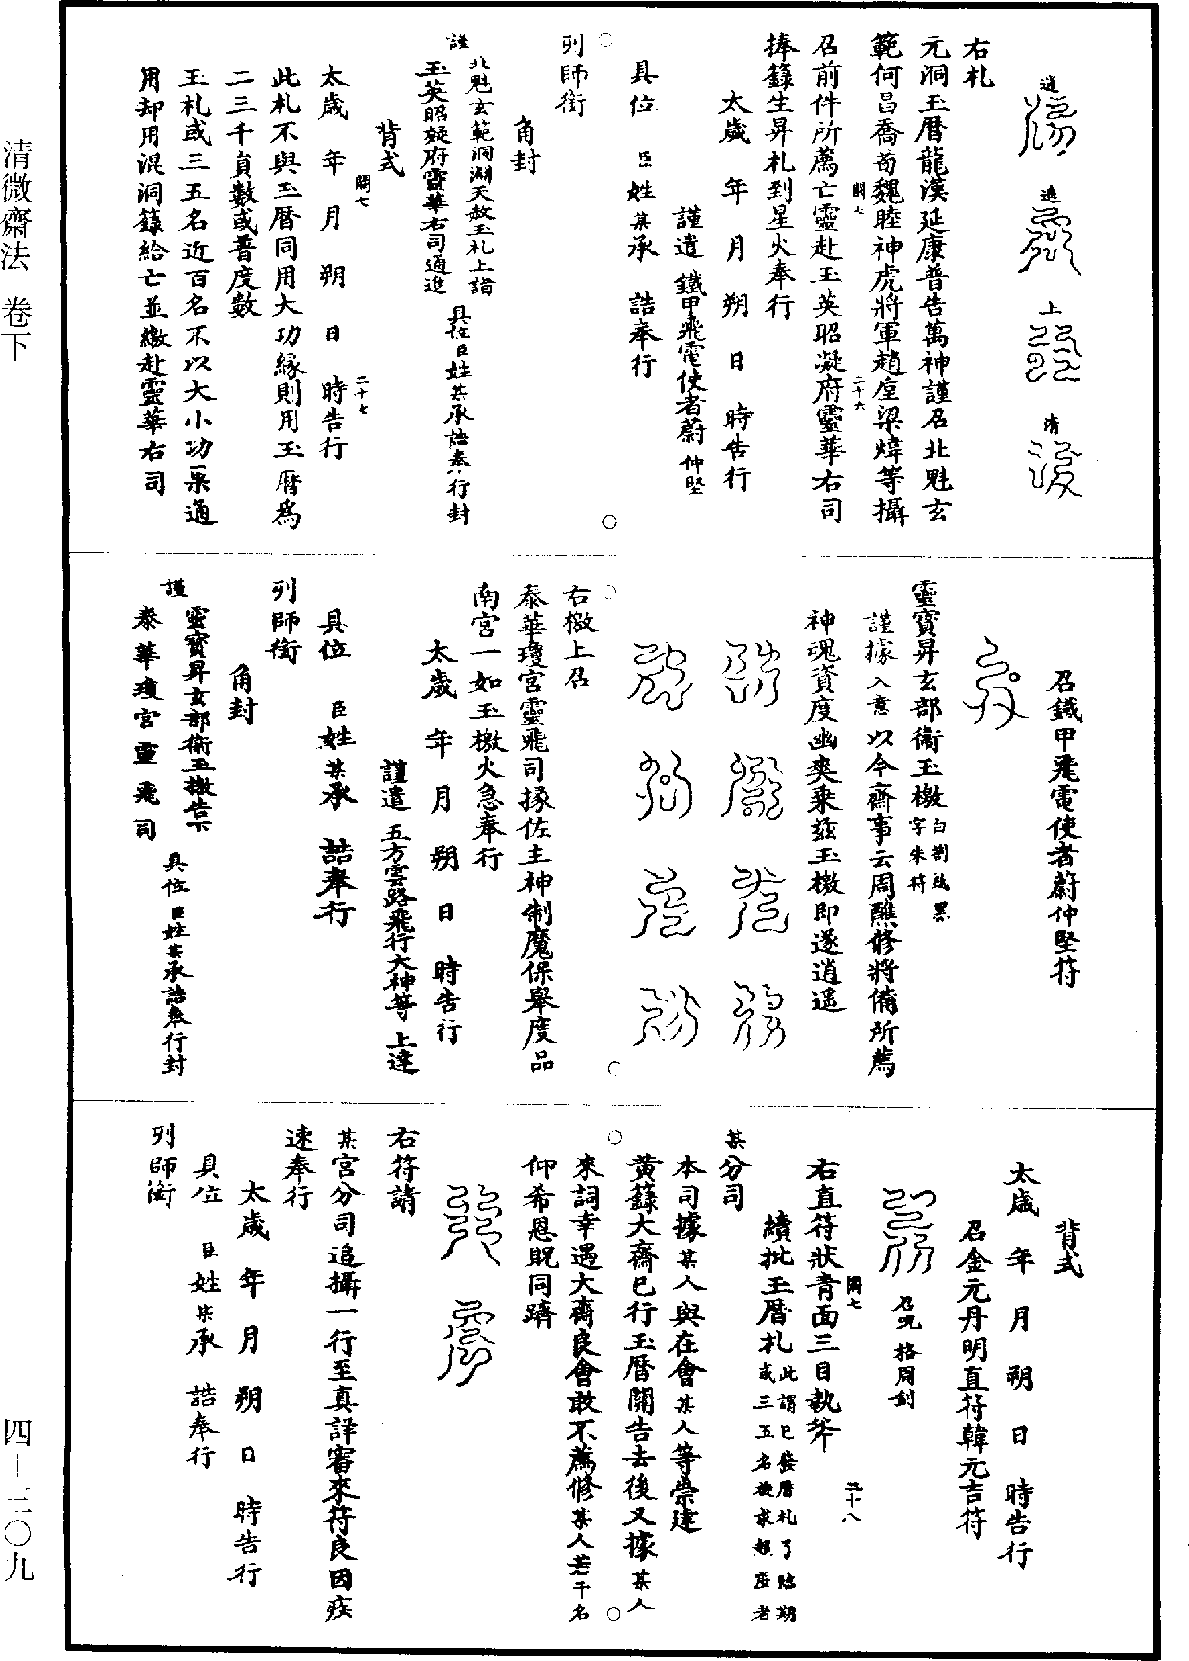 清微齋法 卷下
四—二〇九
追 追 上 清
右札
元洞玉曆龍漢延康普告萬神謹召北魁玄
範何昌喬荀魏睦神虎將軍趙㙓梁煒等攝
召前件所薦亡靈赴玉英昭凝府靈華右司
捧籙生昇札到星火奉行
太歲 年 月 朔 日 時告行
謹遣 鐵甲飛電使者蔚 仲堅
具位 臣姓某承 誥奉行
列師銜
角封
謹 北魁玄範洞淵天赦玉札上詣
玉英昭凝府靈華右司通進 具位臣姓某承誥奉行封
背式
太歲 年 月 朔 日 時告行
此札不與玉曆同用大功緣則用玉曆爲
二三千員數或普度數
玉札或三五名近百名不以大小功果通
用却用混洞籙給亡並繳赴靈華右司
召鐵甲飛電使者蔚仲堅符
靈寶昇玄部衛玉檄
謹據入意以今齋事云周醮修將備所薦
神魂資度幽爽乘茲玉檄即遂逍遥
右檄上召
泰華瓊宮靈飛司掾佐主神制魔保舉度品
南宮一如玉檄火急奉行
太歲 年 月 朔 日 時告行
謹遣 五方雲路飛行大神等 上達
具位 臣姓某承 誥奉行
列師銜
角封
謹 靈寶昇玄部衛玉檄告下
泰華瓊宮靈飛司 具位臣姓某承誥奉行封
背式
太歲 年 月 朔 日 時告行
召金元丹明直符韓元吉符
召咒 格周剑
右直符狀青面三目執斧
續批玉曆札 此謂已發曆札了臨期
或三五名後求預薦者
某分司
本司據某人與在會某人等崇建
黃籙大齋已行玉曆關告去後又據某人
來詞幸遇大齋良會敢不薦修某人若干名
仰希恩貺同躋
右符請
某宮分司追攝一行至真詳審來符良因疾
速奉行
太歲 年 月 朔 日 時告行
具位 臣姓某承 誥奉行
列師銜